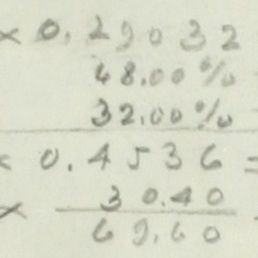 × 0.29032
48.00%
32.00%
× 0.4536 =
× 30.40
69.60